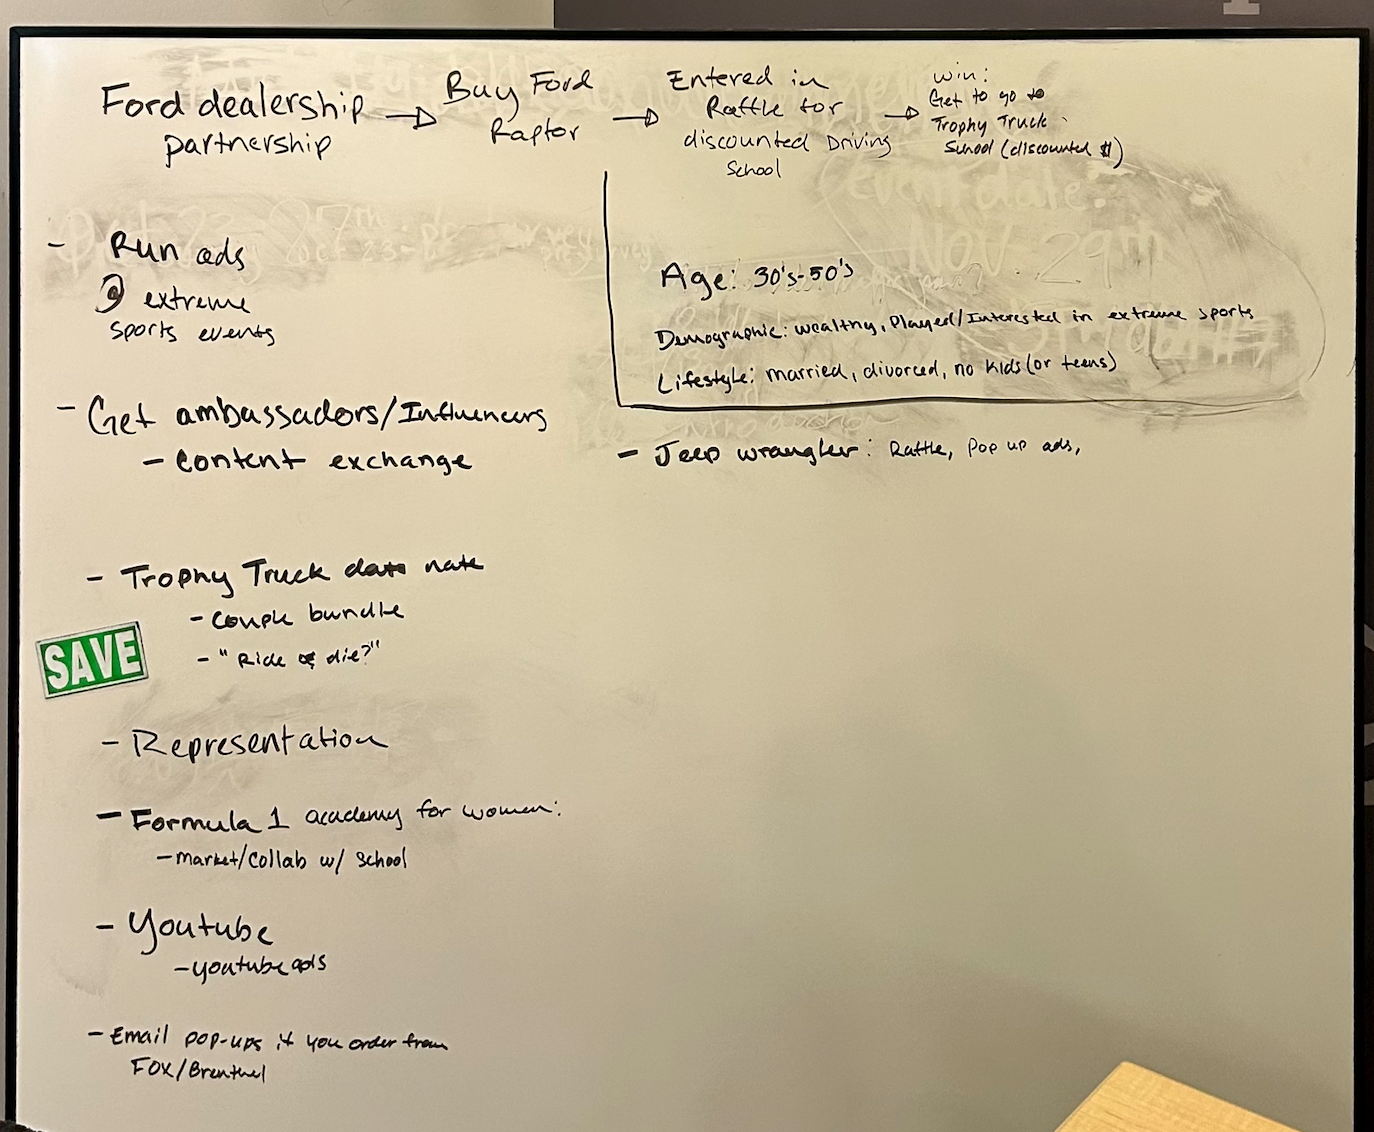 Ford dealership
partnership
Buy Ford
Raptor
Entered in
Raffle for
discounted Driving
School
Win:
Get to go to
Trophy Truck
School (discounted $)
- Run ads
@ extreme
sports events
Event date:
Nov 29th
Age: 30's-50's
Demographic: wealthy, Played/Interested in extreme sports
Lifestyle: married, divorced, no kids (or teens)
- Get ambassadors/Influencers
- content exchange
- Jeep wrangler: Raffle, Pop up ads,
- Trophy Truck date nate
- couple bundle
- "Ride or die?"
SAVE
- Representation
- Formula 1 academy for women:
- market/collab w/ school
- Youtube
- youtube ads
- Email pop-ups if you order from
FOX/Brenthel